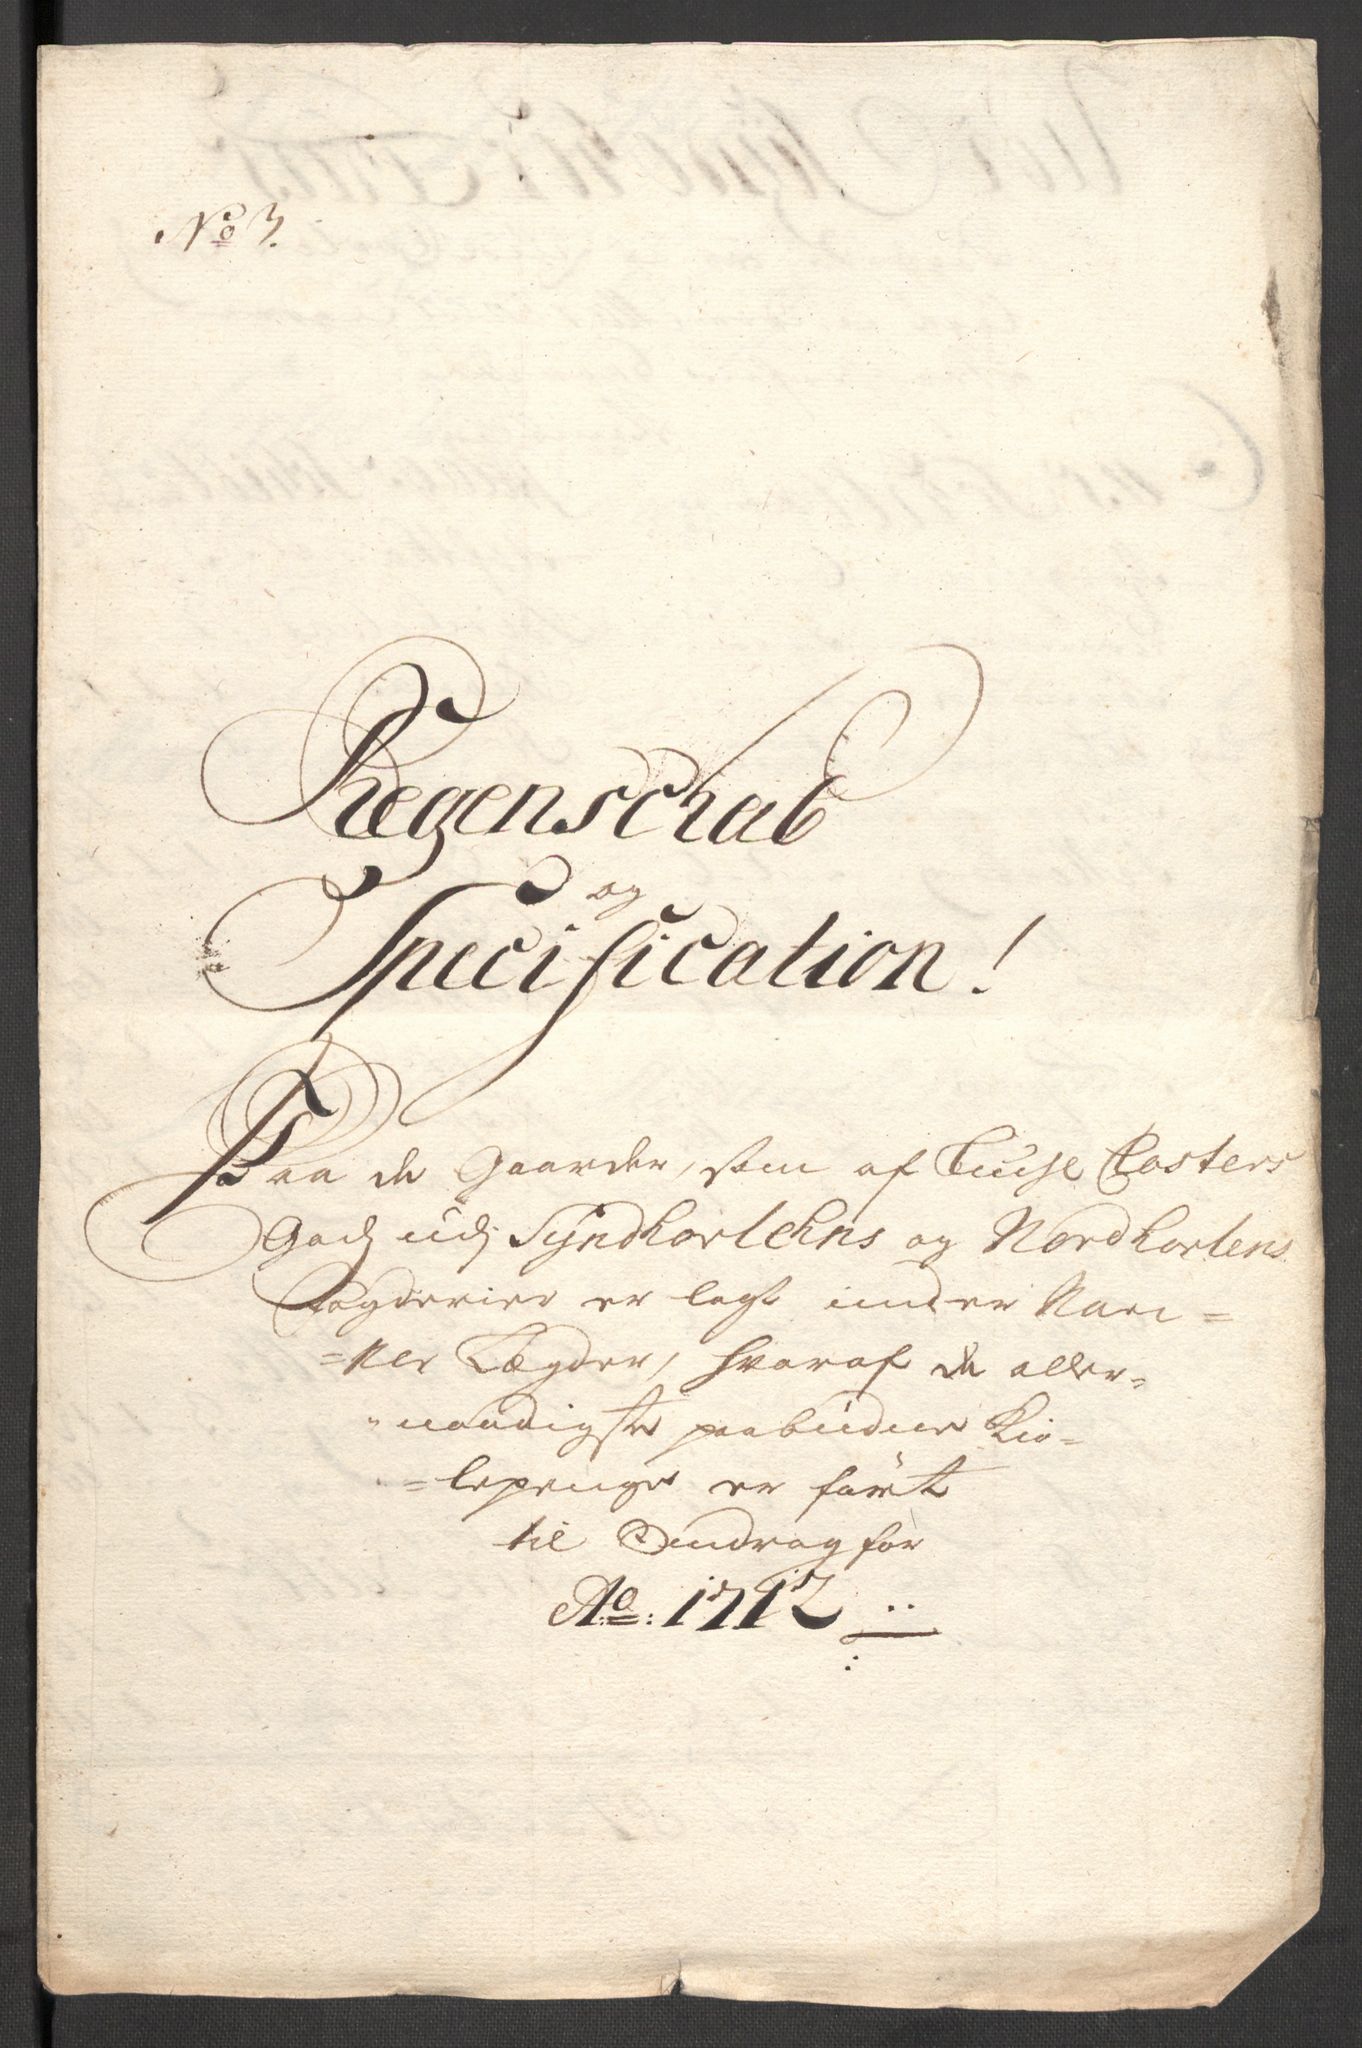 No 3.
Regenschab
og
Specification!
Paa de Gaarder, som af Luche Closters
Godz udj Syndhorlehns og Nordhorlens
Fogderier er lagt under Nari-
=ner Lægder, hvoraf de aller=
"naadigste paabudne Kio-
=lepenge er ført
til Indrag for
Ao: 1712